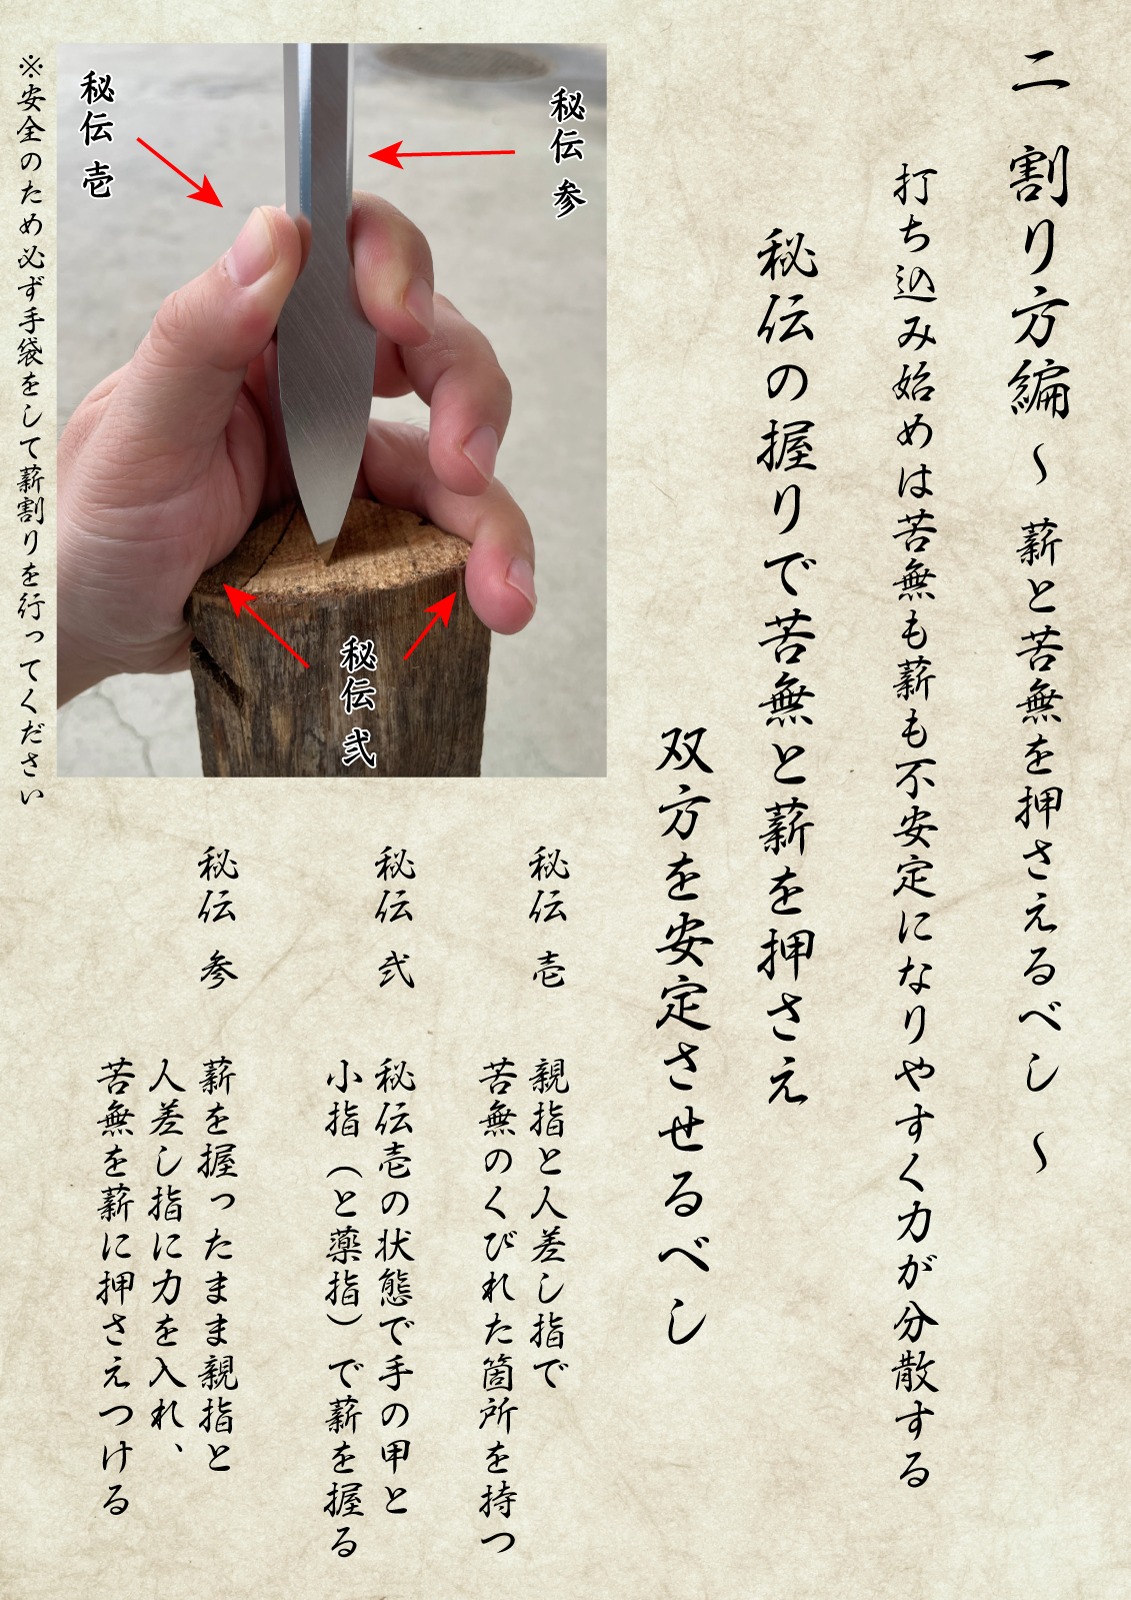 二 割り方編 ～ 薪と苦無を押さえるべし ～
打ち込み始めは苦無も薪も不安定になりやすく力が分散する
秘伝の握りで苦無と薪を押さえ
双方を安定させるべし
秘伝 参
秘伝 壱
秘伝 弐
※安全のため必ず手袋をして薪割りを行ってください
秘伝 壱
親指と人差し指で
苦無のくびれた箇所を持つ
秘伝 弐
秘伝壱の状態で手の甲と
小指（と薬指）で薪を握る
秘伝 参
薪を握ったまま親指と
人差し指に力を入れ、
苦無を薪に押さえつける